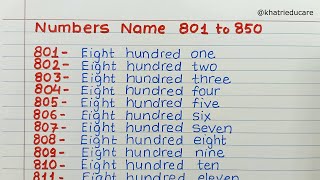 @khatrieducare
Numbers Name 801 to 850
801- Eight hundred one
802- Eight hundred two
803- Eight hundred three
804- Eight hundred four
805- Eight hundred five
806- Eight hundred six
807- Eight hundred seven
808- Eight hundred eight
809- Eight hundred nine
810- Eight hundred ten
811- Eight hundred eleven